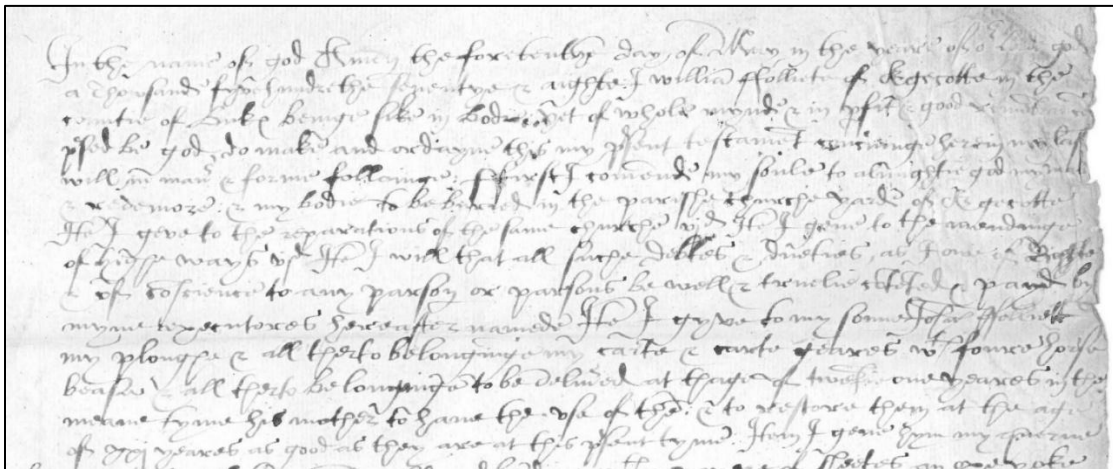 In the name of god Amen the foretenthe day of May in the yeare of o^r lord god
a thousande fyve hundrethe seventye & aighte I william ffolliete of Edgecotte in the
countie of buck beinge sike in bodie yet of whole mynde & in pfit & good
psed be god, do make and ordayne this my psent testamet concieninge herein my last
will in man & forme followinge: ffirst I comende my soule to almightie god my
& redemore: & my bodie to be buried in the parisshe churche yarde of Edgecotte
Ite I geve to the reparations of the same churche Ite I geve to the amendinge
of hyghe ways Ite I will that all suche debtes & dueties, as I owe of Righte
& of coscience to any parson or parsons be well & truelie coteted & payd by
myne executores hereafter namede Ite I gyve to my sonne ffolliett
my ploughe & all therto belonginge my carte & carte geares w^t fowre horse
beastes & all therto belonginge to be delived at thage of twentie one yeares in the
meane tyme his mother to have the use of the: & to restore them at the age
of xxi yeares as good as they are at this psent tyme. Item I geve hym my
sheetes